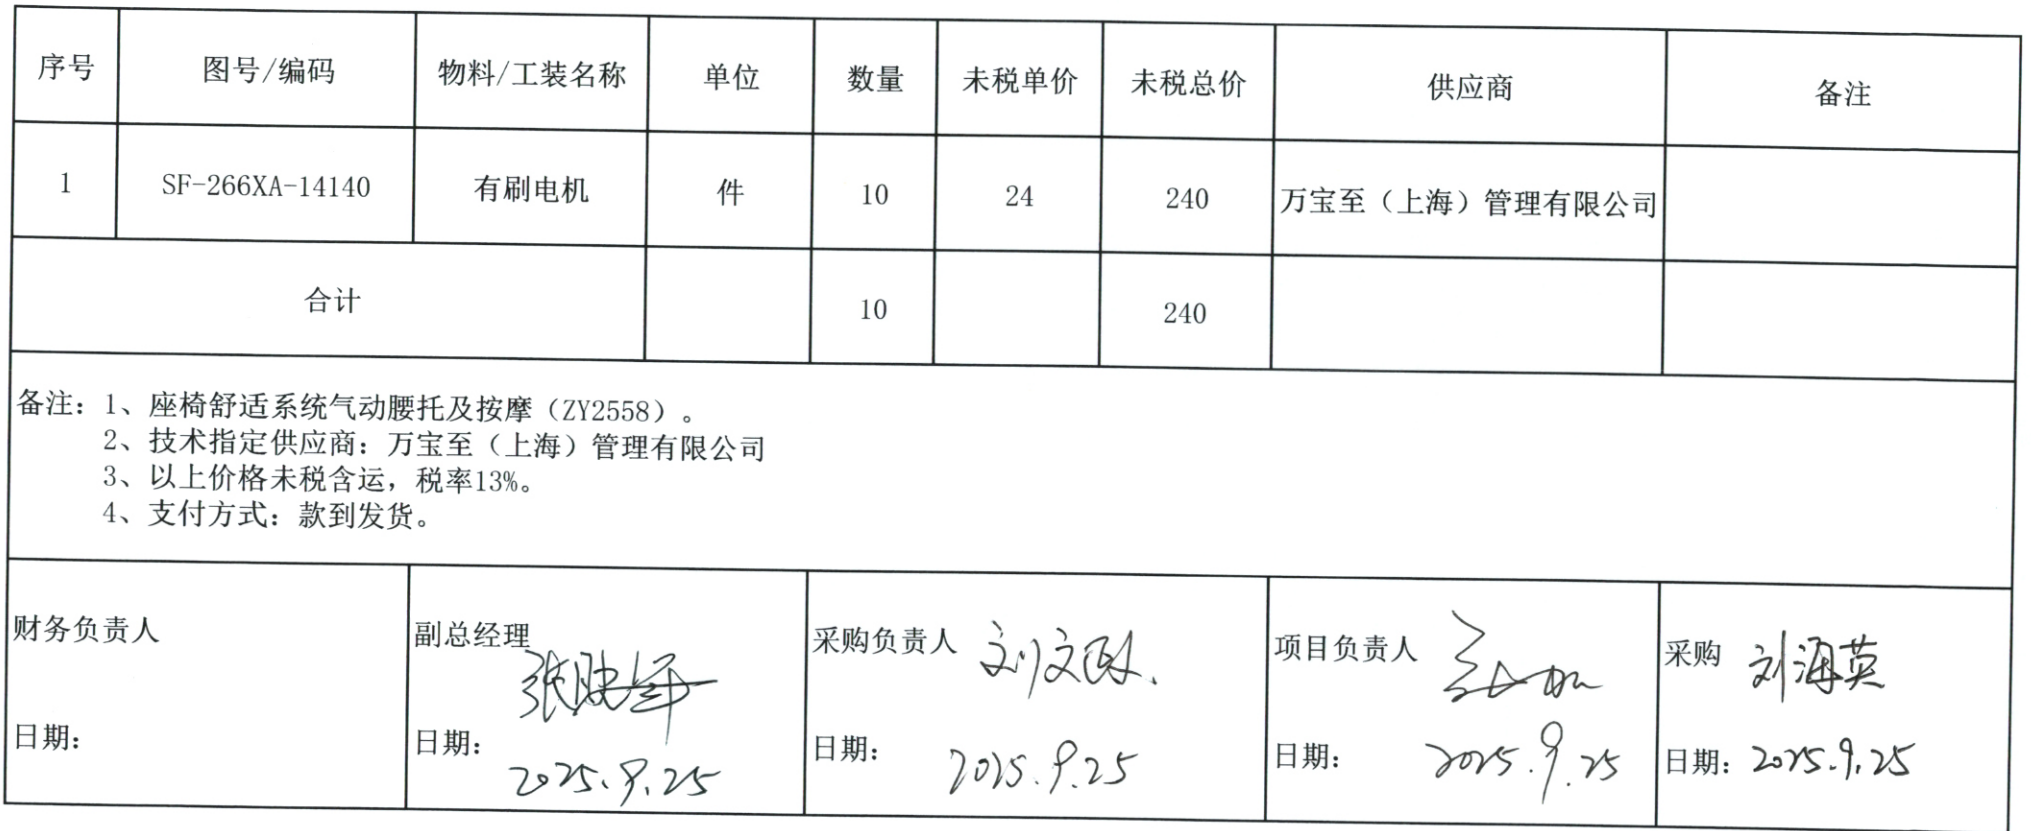 序号 图号/编码 物料/工装名称 单位 数量 未税单价 未税总价 供应商 备注
1 SF-266XA-14140 有刷电机 件 10 24 240 万宝至（上海）管理有限公司
合计 10 240
备注：1、座椅舒适系统气动腰托及按摩（ZY2558）。
2、技术指定供应商：万宝至（上海）管理有限公司
3、以上价格未税含运，税率13%。
4、支付方式：款到发货。
财务负责人 副总经理 采购负责人 刘文 项目负责人 采购 刘海英
日期： 日期：2025.9.25 日期：2025.9.25 日期：2025.9.25 日期：2025.9.25